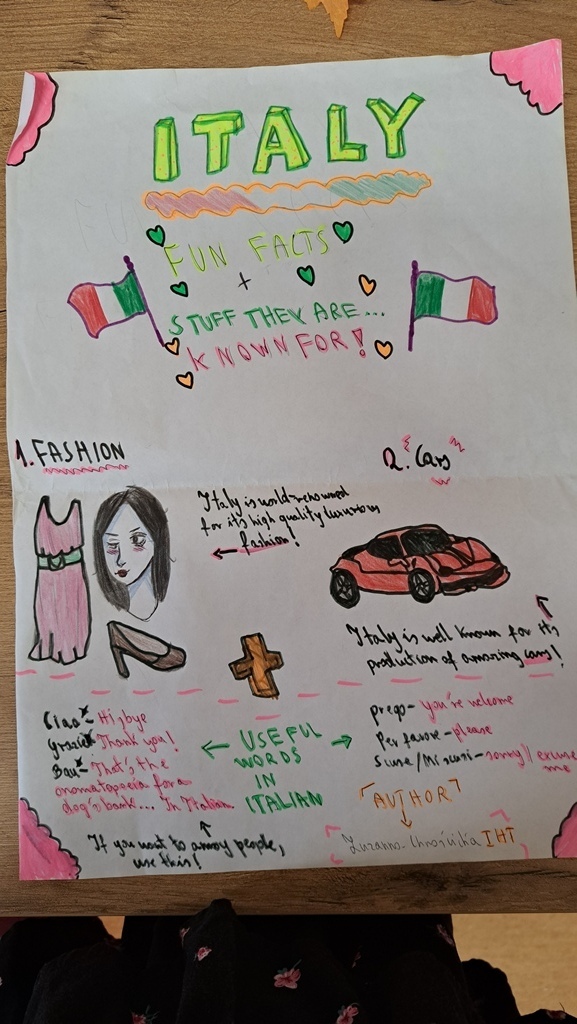 ITALY
FUN FACTS
+
STUFF THEY ARE...
KNOWN FOR!
1. FASHION
2. "Cars"
Italy is world-renowned
for it's high quality luxurious
fashion!
Italy is well known for its
production of amazing cars!
Ciao - Hi, bye
Grazie - Thank you!
Bau - That's the
onomatopoeia for a
dog's bark... In Italian.
If you want to annoy people,
use this!
USEFUL
WORDS
IN
ITALIAN
prego - you're welcome
Per favore - please
Scuse/Mi scusi - sorry/excuse
me
"AUTHOR"
IHT